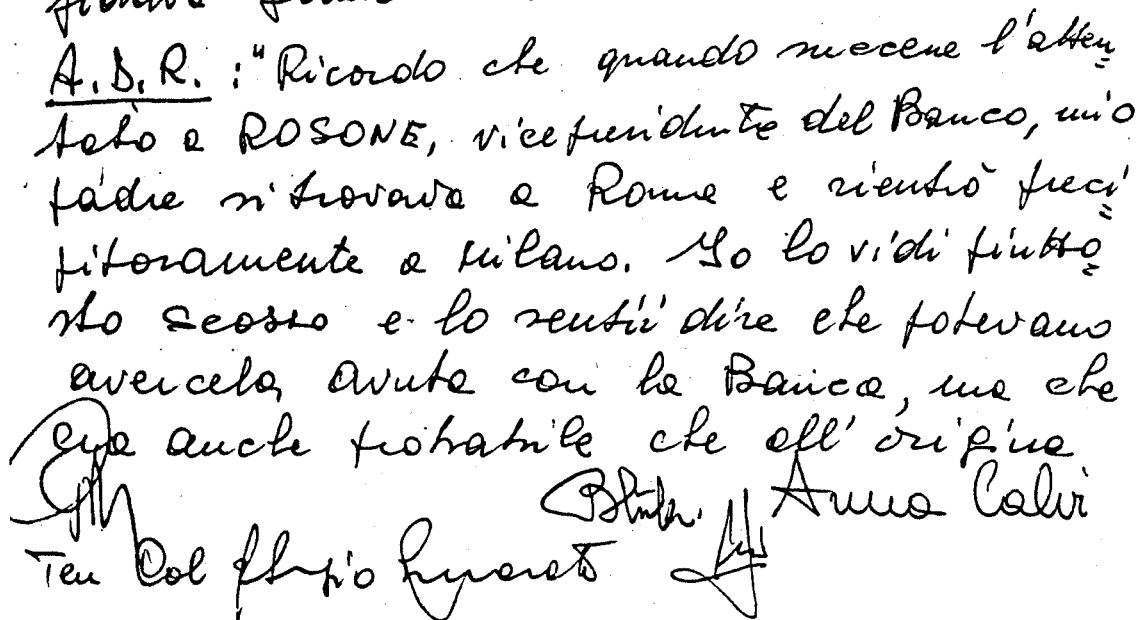 A.D.R.: "Ricordo che quando succene l'atten=
tato a ROSONE, vicepresidente del Banco, mio
padre si trovava a Roma e rientrò preci=
pitoramente a Milano. Io lo vidi piutto=
sto scosso e lo sentii dire che potevano
avercela avuta con la Banca, ma che
era anche probabile che all'origine
Anna Calvi
Ten Col